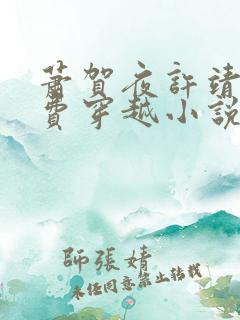 蕭賀夜許靖
費穿越小說
師張婧
未经同意禁止转载